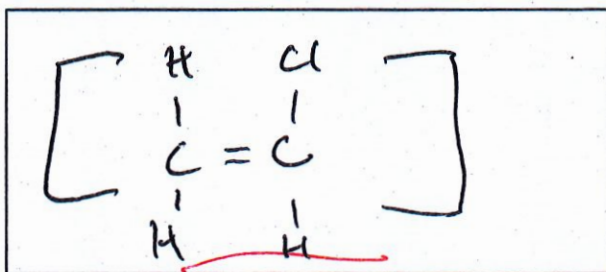 H Cl
C = C
H H